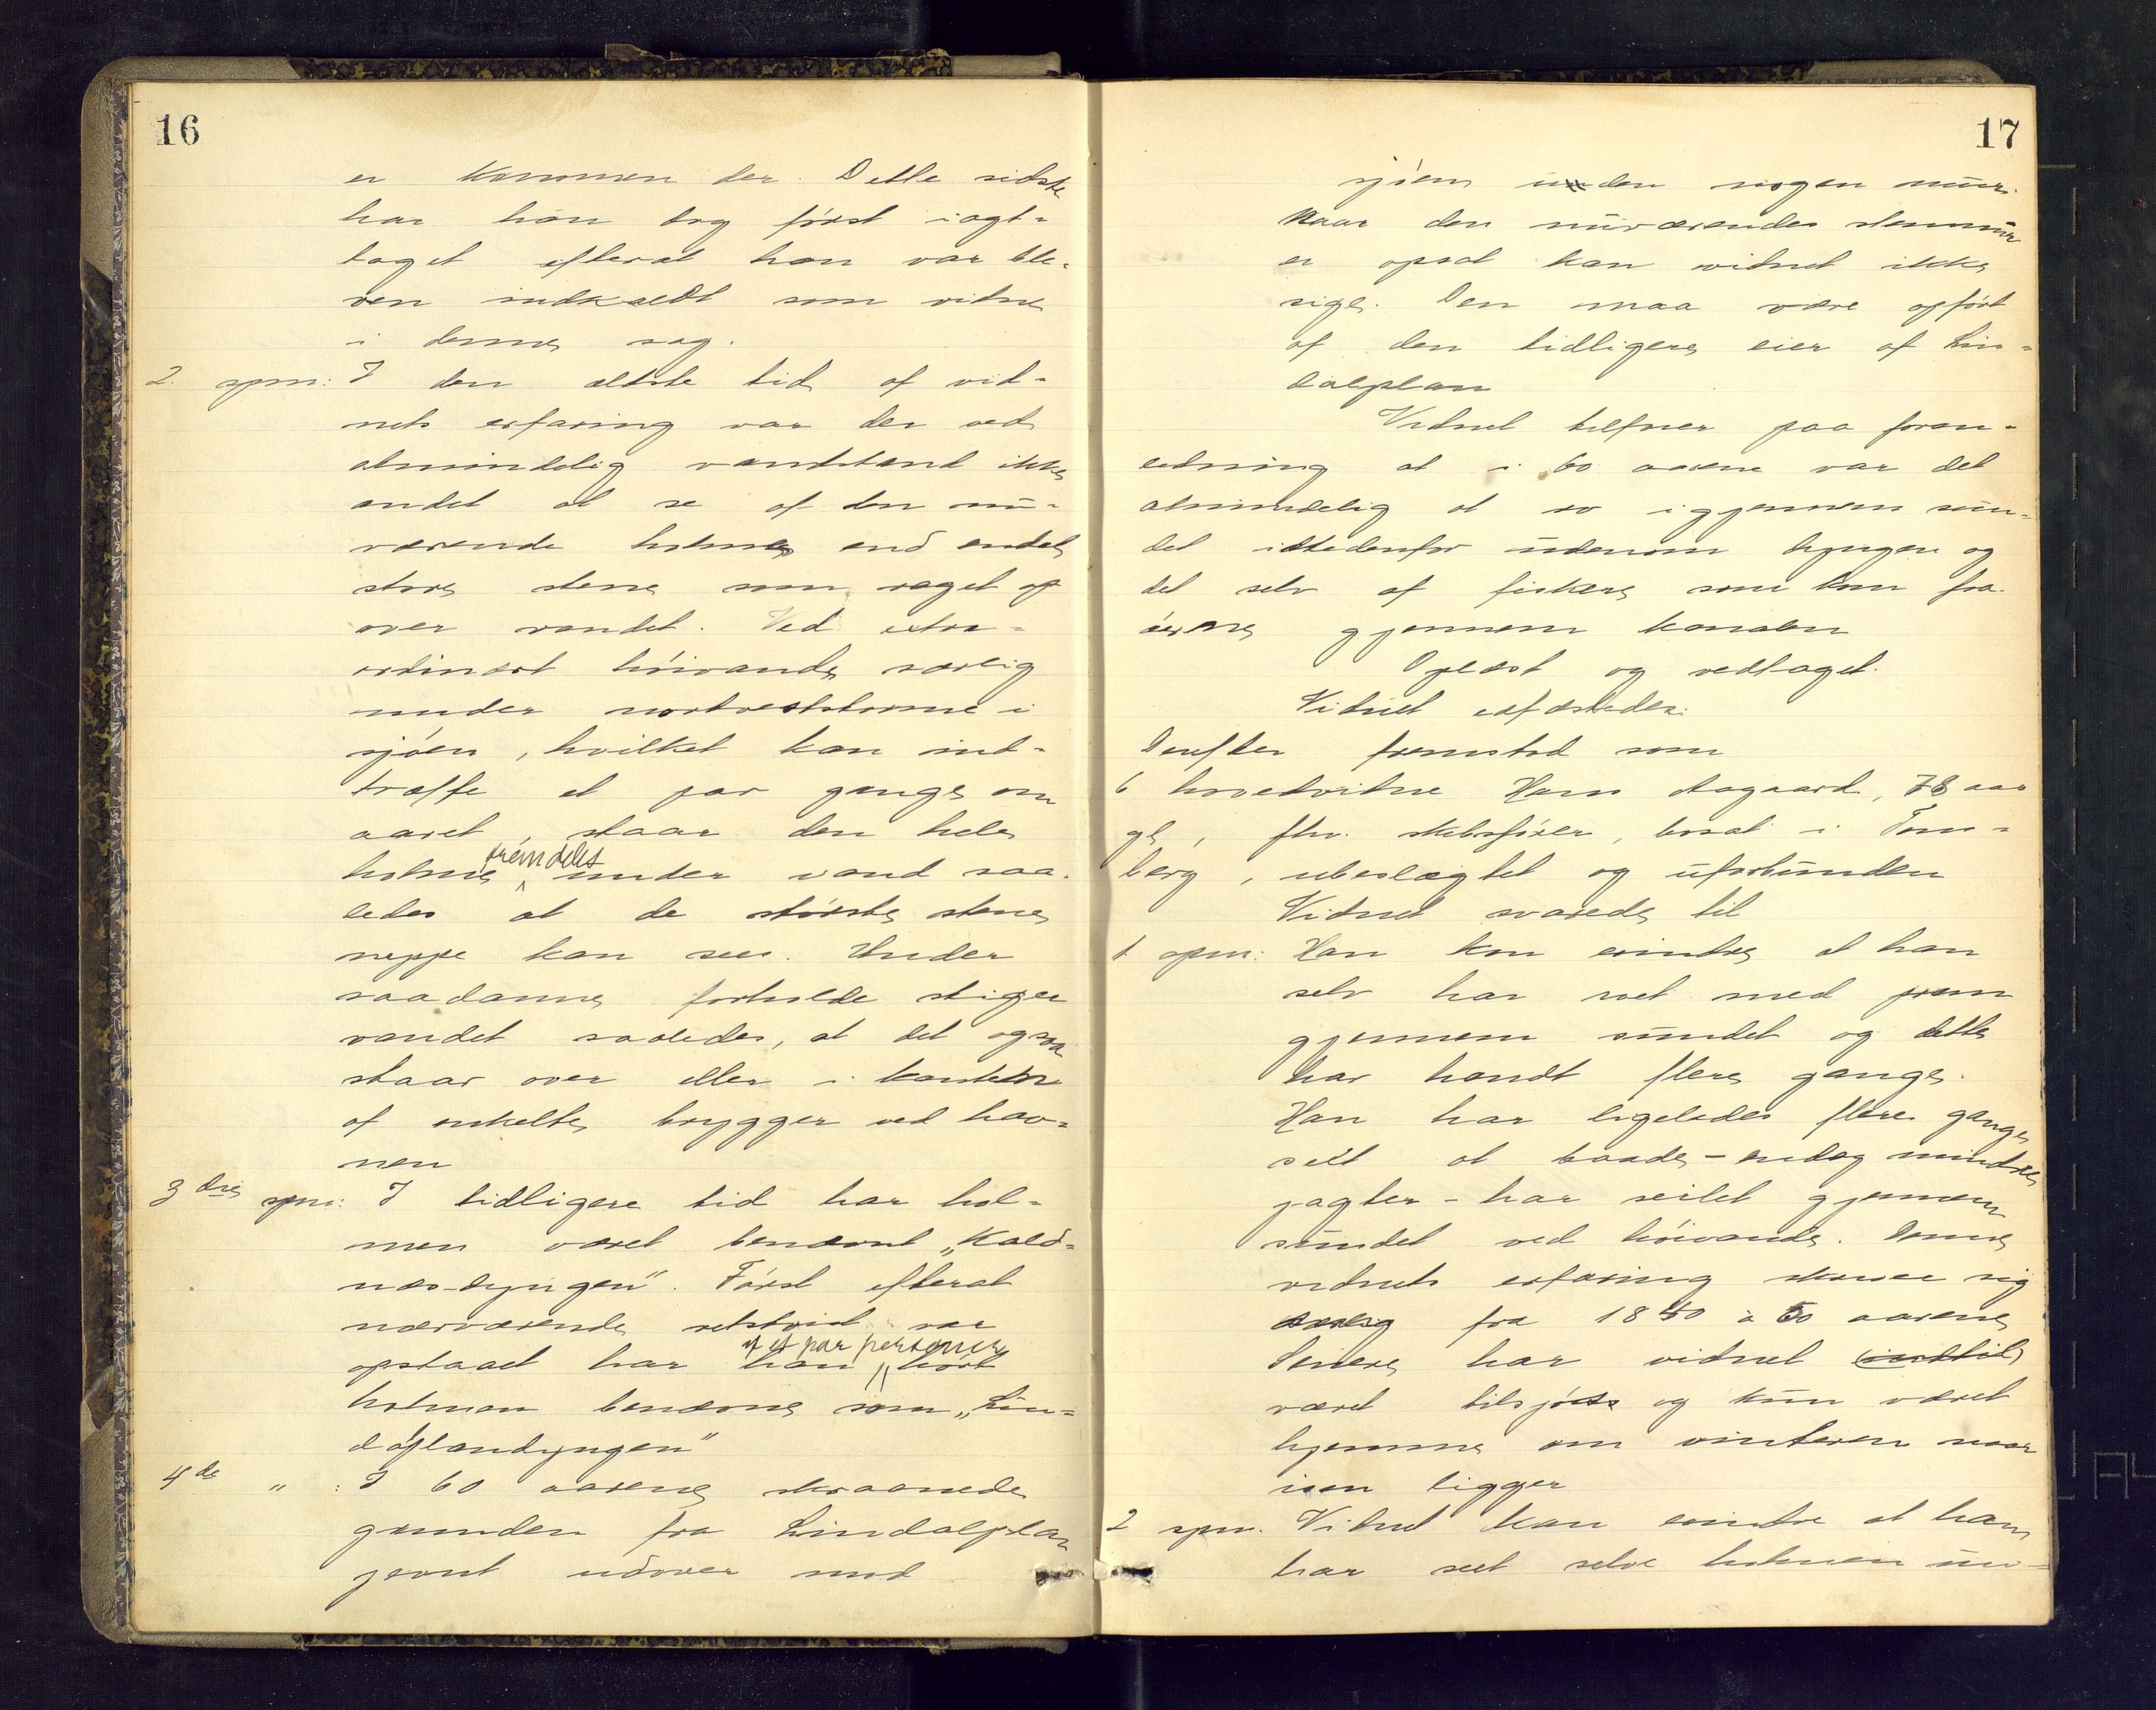 16
er kommen der. Dette sidste
har han dog først iagt-
taget efterat han var ble-
ven indkaldt som vidne
i denne sag.
2. spm: I den ældste tid af vid-
nets erfaring var der ved
almindelig vandstand ikke
andet at se af den nu-
værende holme end endel
store stene som raget op
over vandet. Ved extra-
ordinært høivande særlig
under nordveststorme i
sjøen, hvilket kan ind-
træffe et par gange om
aaret, staar den hele
holme tremdeles under vand saa-
ledes at de største stene
neppe kan sees. Under
saadanne forholde stiger
vandet saaledes, at det ogsaa
staar over eller i kanten
af enkelte brygger ved hav-
nen
3 die spm: I tidligere tid har hol-
men været benævnt „Kald-
næs-dyngen". Først efterat
nærværende retstvist var
opstaaet har han af et par personer hørt
holmen benævne som „Lin-
dalplandyngen"
4de " : I 60 aarene skraanede
grunden fra Lindalplan
jevnt udover mod
17
sjøen uden nogen mur.
Naar den nuværende stenmur
er opsat kan vidnet ikke
sige. Den maa være opført
af den tidligere eier af Lin-
dalplan
Vidnet tilføier paa foran-
ledning at i 60 aarene var det
almindelig at ro igjennem sun-
det istedenfor udenom dyngen og
det selv af fiskere som kom fra
øerne gjennem kanalen
Oplæst og vedtaget.
Vidnet edfæstedes.
Derefter fremstod som
6 hovedvidne Hans Aagaard, 78 aar
gl, fhv. skibsfører, bosat i Tøns-
berg, ubeslægtet og uforbunden
Vidnet svarede til
1. spm: Han kan erindre at han
selv har roet med pram
gjennem sundet og dette
har hændt flere gange.
Han har ligeledes flere gange
seet at baade - endog mindre
jagter - har seilet gjennem
sundet ved høivande. Denne
vidnets erfaring skriver sig
fra 1840 à 50 aarene
Senere har vidnet (indtil)
været tilsjøss og kun været
hjemme om vinteren naar
isen ligger
2 spm. Vidnet kan erindre at han
har seet selve holmen un-